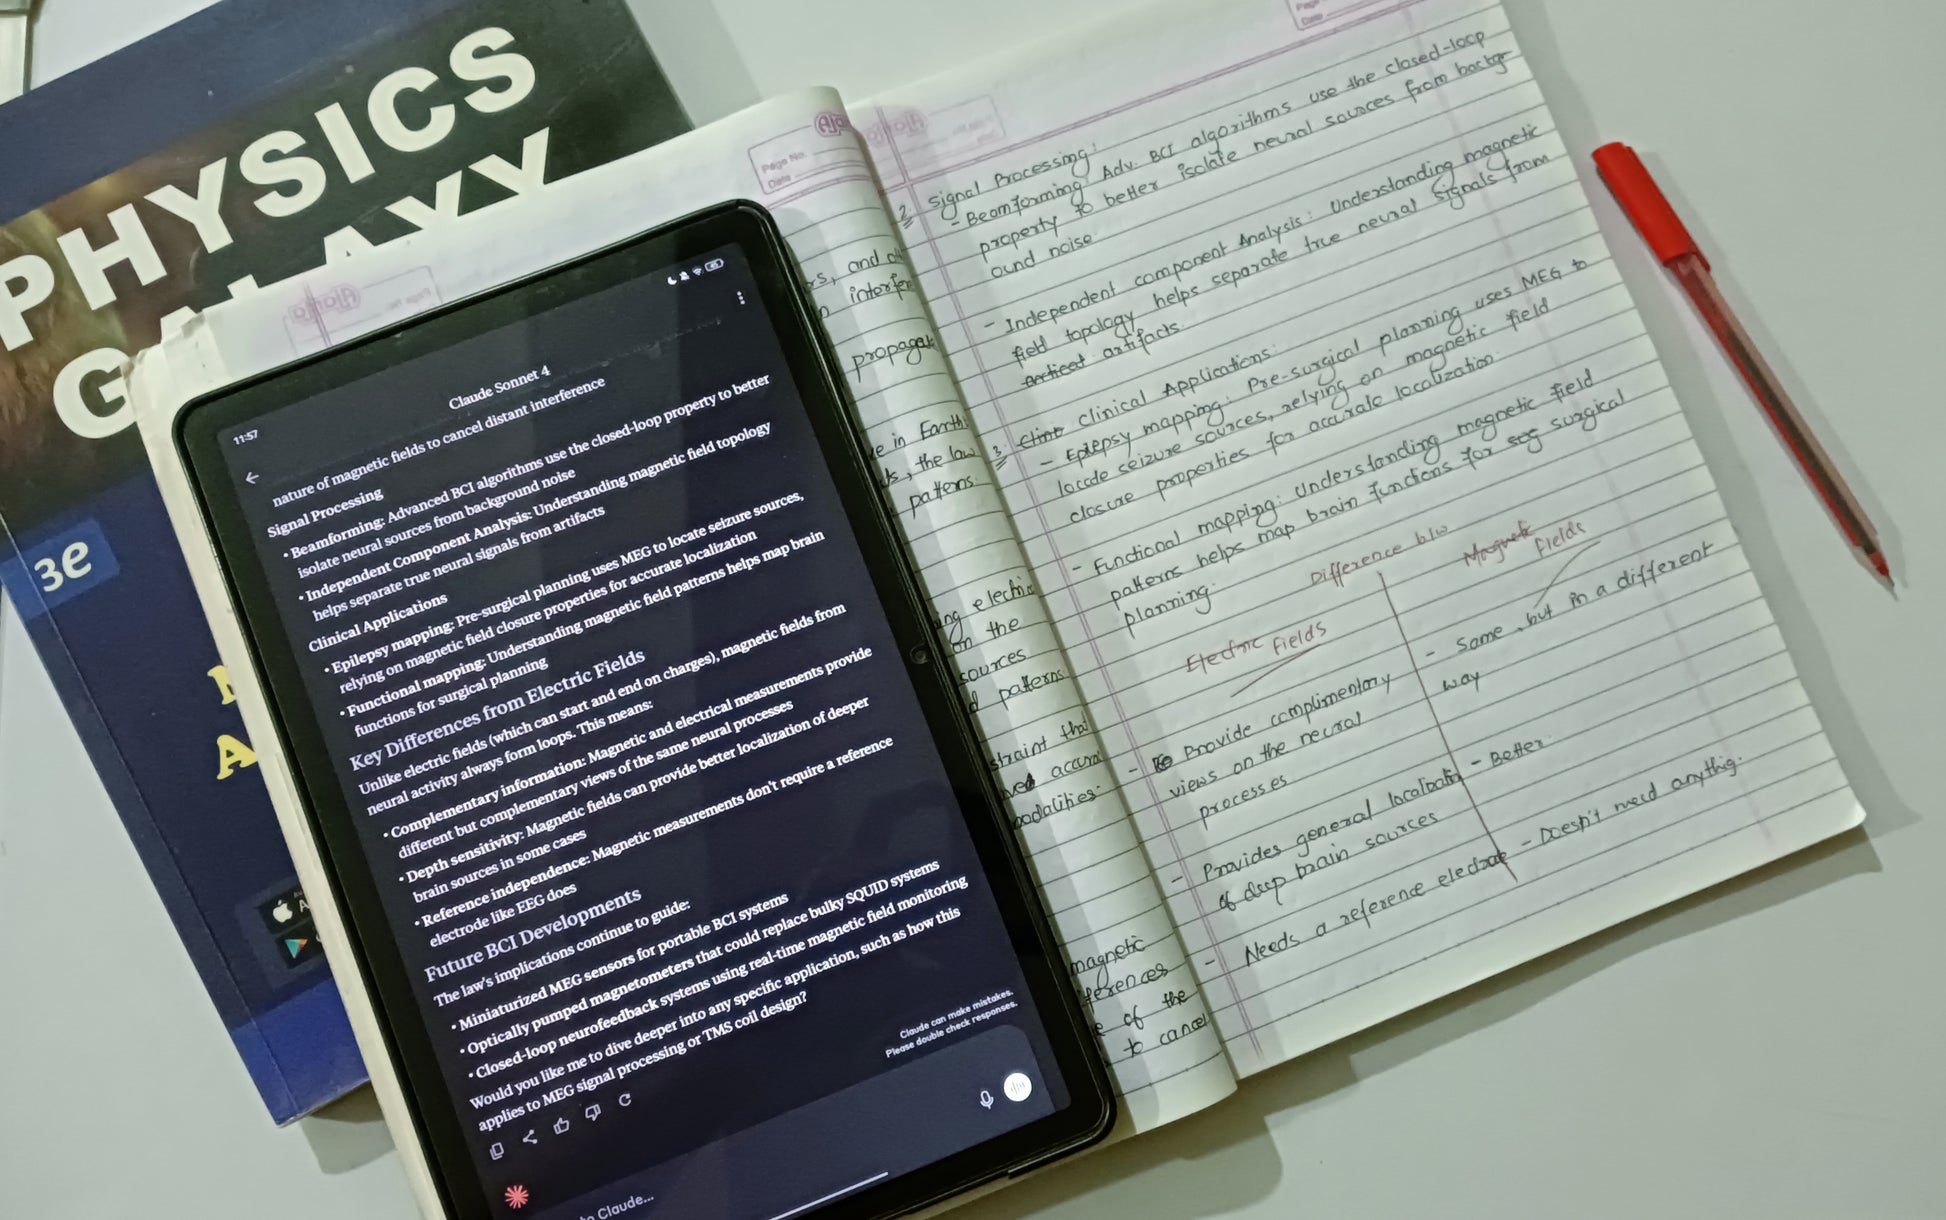 PHYSICS
GALAXY
3e
11:57
Claude Sonnet 4
nature of magnetic fields to cancel distant interference
Signal Processing
• Beamforming: Advanced BCI algorithms use the closed-loop property to better
isolate neural sources from background noise
• Independent Component Analysis: Understanding magnetic field topology
helps separate true neural signals from artifacts
Clinical Applications
• Epilepsy mapping: Pre-surgical planning uses MEG to locate seizure sources,
relying on magnetic field closure properties for accurate localization
• Functional mapping: Understanding magnetic field patterns helps map brain
functions for surgical planning
Key Differences from Electric Fields
Unlike electric fields (which can start and end on charges), magnetic fields from
neural activity always form loops. This means:
• Complementary information: Magnetic and electrical measurements provide
different but complementary views of the same neural processes
• Depth sensitivity: Magnetic fields can provide better localization of deeper
brain sources in some cases
• Reference independence: Magnetic measurements don't require a reference
electrode like EEG does
Future BCI Developments
The law's implications continue to guide:
• Miniaturized MEG sensors for portable BCI systems
• Optically pumped magnetometers that could replace bulky SQUID systems
• Closed-loop neurofeedback systems using real-time magnetic field monitoring
Would you like me to dive deeper into any specific application, such as how this
applies to MEG signal processing or TMS coil design?
Claude can make mistakes.
Please double check responses.
to Claude...
Page No.
Date
rs, and
interfer
propagat
in Earth
, the law
patterns.
electric
on the
sources
patterns
straint that
accura
modalities:
magnetic
ferences
of the
to cancel
2 Signal Processing:
- Beamforming Adv. BCI algorithms use the closed-loop
property to better isolate neural sources from backgr
ound noise.
- Independent component Analysis: Understanding magnetic
field topology helps separate true neural signals from
artifacts.
3 Clinical Applications:
- Epilepsy mapping: Pre-surgical planning uses MEG to
locate seizure sources, relying on magnetic field
closure properties for accurate localization.
- Functional mapping: Understanding magnetic field
patterns helps map brain functions for surgical
planning.
Difference b/w
Electric Fields
Magnetic Fields
- Provide complimentary
views on the neural
processes
- Same, but in a different
way
- Provides general localization
of deep brain sources
- Better.
- Needs a reference electrode
- Doesn't need anythig.